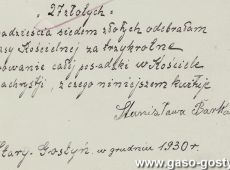 „27 złotych"
dwadzieścia siedem złotych odebrałam
kasy Kościelnej za trzykrotne
posadzki w Kościele
zachrystji, z czego niniejszem kwituję
Stanisława
Stary Gostyń, w grudniu 1930 r.
www.gaso-gosty